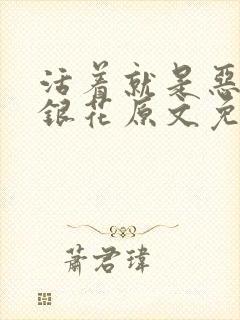 活着就是恶
银花原文免
萧君玮